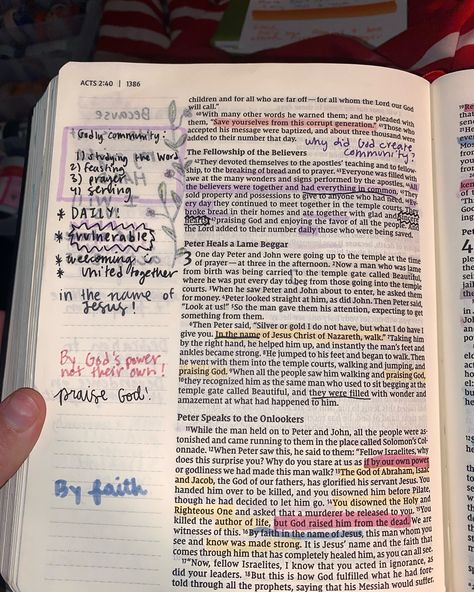 ACTS 2:40 | 1386
Because
Godly community:
1) studying the Word
2) feasting
3) prayer
4) serving
* DAILY!
* vulnerable
* welcoming &
* united together
in the name of
Jesus!
By God's power
not their own!
praise God!
By faith
children and for all who are far off—for all whom the Lord our God
will call."
40With many other words he warned them; and he pleaded with
them, "Save yourselves from this corrupt generation." 41Those who
accepted his message were baptized, and about three thousand were
added to their number that day.
why did God create
community?
The Fellowship of the Believers
42They devoted themselves to the apostles' teaching and to fellow-
ship, to the breaking of bread and to prayer. 43Everyone was filled with
awe at the many wonders and signs performed by the apostles. 44All
the believers were together and had everything in common. 45They
sold property and possessions to give to anyone who had need. 46Ev-
ery day they continued to meet together in the temple courts. They
broke bread in their homes and ate together with glad and sincere
hearts, 47praising God and enjoying the favor of all the people. And
the Lord added to their number daily those who were being saved.
Peter Heals a Lame Beggar
3 One day Peter and John were going up to the temple at the time
of prayer—at three in the afternoon. 2Now a man who was lame
from birth was being carried to the temple gate called Beautiful,
where he was put every day to beg from those going into the temple
courts. 3When he saw Peter and John about to enter, he asked them
for money. 4Peter looked straight at him, as did John. Then Peter said,
"Look at us!" 5So the man gave them his attention, expecting to get
something from them.
6Then Peter said, "Silver or gold I do not have, but what I do have I
give you. In the name of Jesus Christ of Nazareth, walk." 7Taking him
by the right hand, he helped him up, and instantly the man's feet and
ankles became strong. 8He jumped to his feet and began to walk. Then
he went with them into the temple courts, walking and jumping, and
praising God. 9When all the people saw him walking and praising God,
10they recognized him as the same man who used to sit begging at the
temple gate called Beautiful, and they were filled with wonder and
amazement at what had happened to him.
Peter Speaks to the Onlookers
11While the man held on to Peter and John, all the people were as-
tonished and came running to them in the place called Solomon's Col-
onnade. 12When Peter saw this, he said to them: "Fellow Israelites, why
does this surprise you? Why do you stare at us as if by our own power
or godliness we had made this man walk? 13The God of Abraham, Isaac
and Jacob, the God of our fathers, has glorified his servant Jesus. You
handed him over to be killed, and you disowned him before Pilate,
though he had decided to let him go. 14You disowned the Holy and
Righteous One and asked that a murderer be released to you. 15You
killed the author of life, but God raised him from the dead. We are
witnesses of this. 16By faith in the name of Jesus, this man whom you
see and know was made strong. It is Jesus' name and the faith that
comes through him that has completely healed him, as you can all see.
17"Now, fellow Israelites, I know that you acted in ignorance, as
did your leaders. 18But this is how God fulfilled what he had fore-
told through all the prophets, saying that his Messiah would suffer.